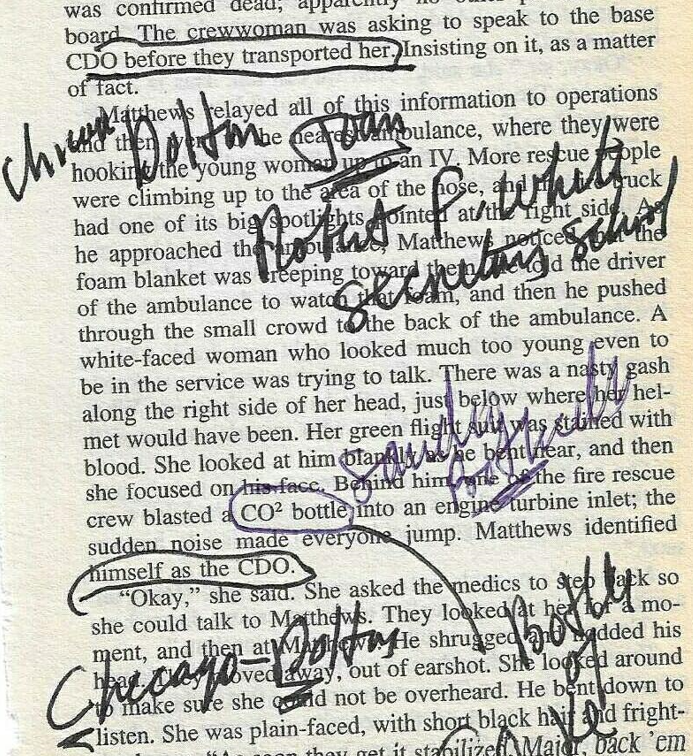 was confirmed dead; apparently no
board. The crewwoman was asking to speak to the base
CDO before they transported her. Insisting on it, as a matter
of fact.
Matthews relayed all of this information to operations
and then the nearest ambulance, where they were
hooking the young woman up to an IV. More rescue people
were climbing up to the area of the nose, and truck
had one of its big spotlights pointed at the right side. As
he approached the ambulance, Matthews noticed the
foam blanket was creeping toward them. the driver
of the ambulance to watch that foam, and then he pushed
through the small crowd to the back of the ambulance. A
white-faced woman who looked much too young even to
be in the service was trying to talk. There was a nasty gash
along the right side of her head, just below where her hel-
met would have been. Her green flight suit was stained with
blood. She looked at him blankly as he bent near, and then
she focused on his face. Behind him, one of the fire rescue
crew blasted a CO² bottle into an engine turbine inlet; the
sudden noise made everyone jump. Matthews identified
himself as the CDO.
"Okay," she said. She asked the medics to step back so
she could talk to Matthews. They looked at her for a mo-
ment, and then at Matthews. He shrugged and nodded his
head. They moved away, out of earshot. She looked around
to make sure she could not be overheard. He bent down to
listen. She was plain-faced, with short black hair and fright-
they get it stabilized, Major, back 'em
Dolton Joan
Robert P. White
secretary school
Sandy
Chicago-Dolton
Bottle
of